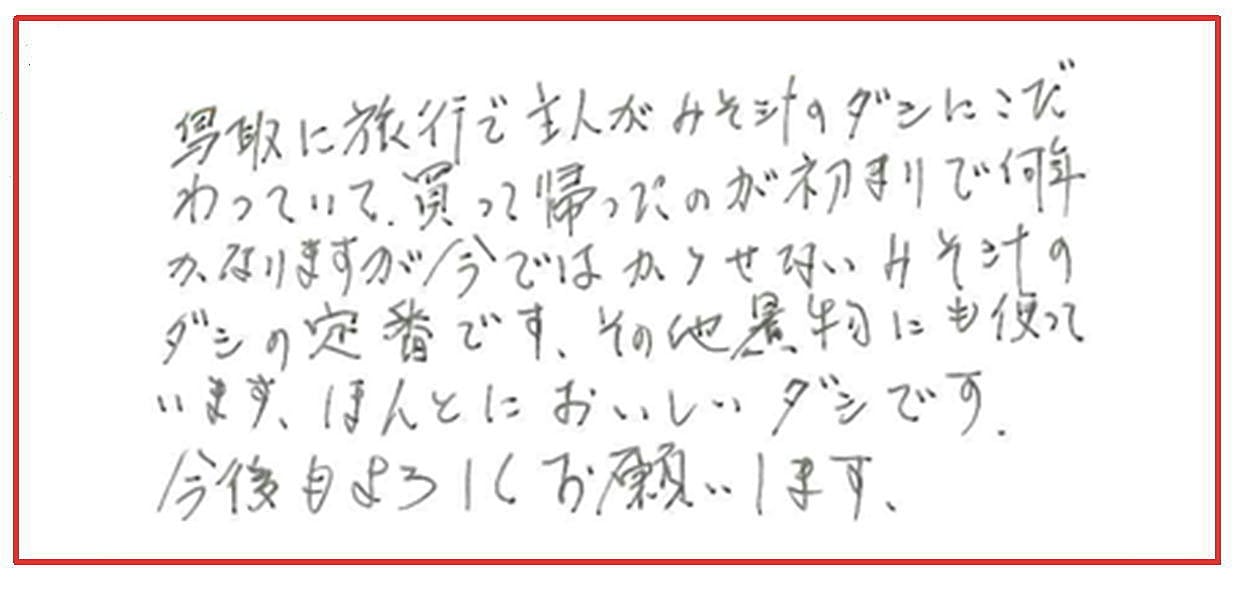 鳥取に旅行で主人がみそ汁のダシにこだ
わっていて、買って帰ったのが初まりで何年
かなりますが今ではかゝせないみそ汁の
ダシの定番です、その他煮物にも使って
います、ほんとにおいしいダシです.
今後もよろしくお願いします、